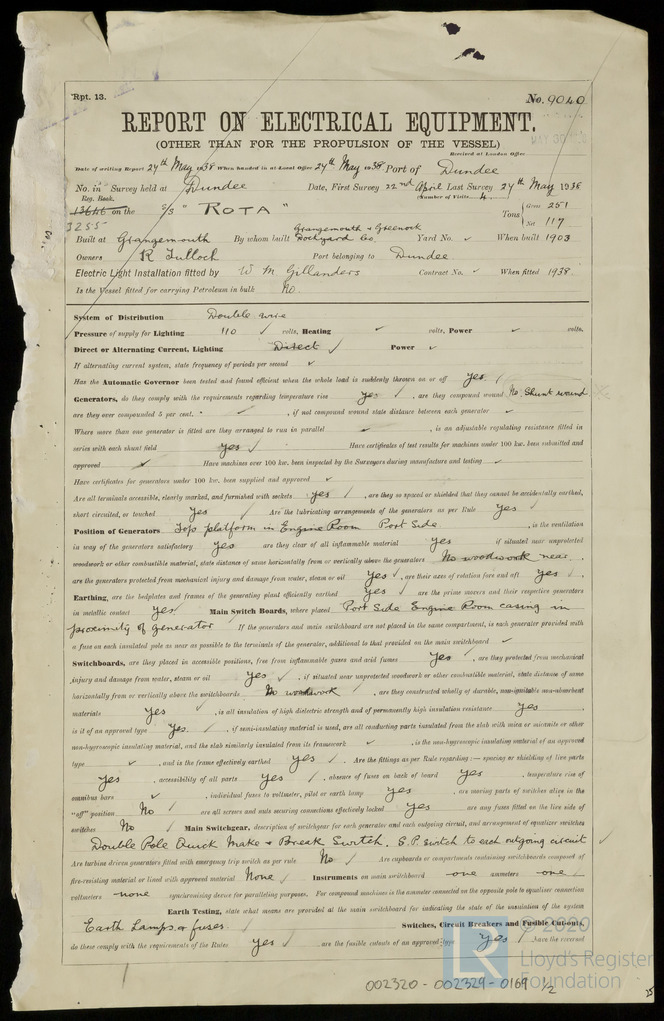 Rpt. 13.
No. 9040
REPORT ON ELECTRICAL EQUIPMENT.
(OTHER THAN FOR THE PROPULSION OF THE VESSEL)
Received at London Office
Date of writing Report 27th May 1938 When handed in at Local Office 27th May 1938 Port of Dundee
No. in Survey held at Dundee Date, First Survey 22nd April Last Survey 27th May 1938
Reg. Book. (Number of Visits 4)
13646 on the S/S "ROTA" Tons Gross 251
3255 Net 117
Grangemouth & Greenock
Built at Grangemouth By whom built Dockyard Co, Yard No. ✓ When built 1903
Owners R Tulloch Port belonging to Dundee
Electric Light Installation fitted by W M Gillanders Contract No. ✓ When fitted 1938
Is the Vessel fitted for carrying Petroleum in bulk No
System of Distribution Double wire
Pressure of supply for Lighting 110 ✓ volts, Heating ✓ volts, Power ✓ volts.
Direct or Alternating Current, Lighting Direct ✓ Power ✓
If alternating current system, state frequency of periods per second ✓
Has the Automatic Governor been tested and found efficient when the whole load is suddenly thrown on or off yes ✓
Generators, do they comply with the requirements regarding temperature rise yes ✓, are they compound wound No. Shunt wound
are they over compounded 5 per cent. ✓, if not compound wound state distance between each generator ✓
Where more than one generator is fitted are they arranged to run in parallel ✓, is an adjustable regulating resistance fitted in
series with each shunt field yes ✓ Have certificates of test results for machines under 100 kw. been submitted and
approved ✓ Have machines over 100 kw. been inspected by the Surveyors during manufacture and testing ✓
Have certificates for generators under 100 kw. been supplied and approved ✓
Are all terminals accessible, clearly marked, and furnished with sockets yes ✓, are they so spaced or shielded that they cannot be accidentally earthed,
short circuited, or touched yes ✓ Are the lubricating arrangements of the generators as per Rule yes ✓
Position of Generators Top platform in Engine Room Port Side, is the ventilation
in way of the generators satisfactory yes are they clear of all inflammable material yes if situated near unprotected
woodwork or other combustible material, state distance of same horizontally from or vertically above the generators No woodwork near.
are the generators protected from mechanical injury and damage from water, steam or oil yes ✓, are their axes of rotation fore and aft yes ✓.
Earthing, are the bedplates and frames of the generating plant efficiently earthed yes ✓ are the prime movers and their respective generators
in metallic contact yes ✓ Main Switch Boards, where placed Port Side Engine Room casing in
proximity of generator If the generators and main switchboard are not placed in the same compartment, is each generator provided with
a fuse on each insulated pole as near as possible to the terminals of the generator, additional to that provided on the main switchboard ✓
Switchboards, are they placed in accessible positions, free from inflammable gases and acid fumes yes ✓, are they protected from mechanical
injury and damage from water, steam or oil yes ✓, if situated near unprotected woodwork or other combustible material, state distance of same
horizontally from or vertically above the switchboards No woodwork, are they constructed wholly of durable, non-ignitable non-absorbent
materials yes ✓, is all insulation of high dielectric strength and of permanently high insulation resistance yes
is it of an approved type yes. ✓, if semi-insulating material is used, are all conducting parts insulated from the slab with mica or micanite or other
non-hygroscopic insulating material, and the slab similarly insulated from its framework ✓, is the non-hygroscopic insulating material of an approved
type ✓, and is the frame effectively earthed yes ✓. Are the fittings as per Rule regarding:— spacing or shielding of live parts
yes, accessibility of all parts yes ✓, absence of fuses on back of board yes ✓, temperature rise of
omnibus bars ✓, individual fuses to voltmeter, pilot or earth lamp yes, are moving parts of switches alive in the
"off" position No ✓ are all screws and nuts securing connections effectively locked yes are any fuses fitted on the live side of
switches No ✓ Main Switchgear, description of switchgear for each generator and each outgoing circuit, and arrangement of equalizer switches
Double Pole Quick Make & Break Switch. S.P. switch to each outgoing circuit
Are turbine driven generators fitted with emergency trip switch as per rule No ✓ Are cupboards or compartments containing switchboards composed of
fire-resisting material or lined with approved material None ✓ Instruments on main switchboard one ammeters one ✓
voltmeters none synchronising device for paralleling purposes. For compound machines is the ammeter connected on the opposite pole to equaliser connection
Earth Testing, state what means are provided at the main switchboard for indicating the state of the insulation of the system
Earth Lamps or fuses Switches, Circuit Breakers and Fusible Cut-outs,
do these comply with the requirements of the Rules yes ✓ are the fusible cutouts of an approved type yes ✓ have the reversed
© 2020
LR Lloyd's Register
Foundation
002320 - 002329 - 0169 1/2